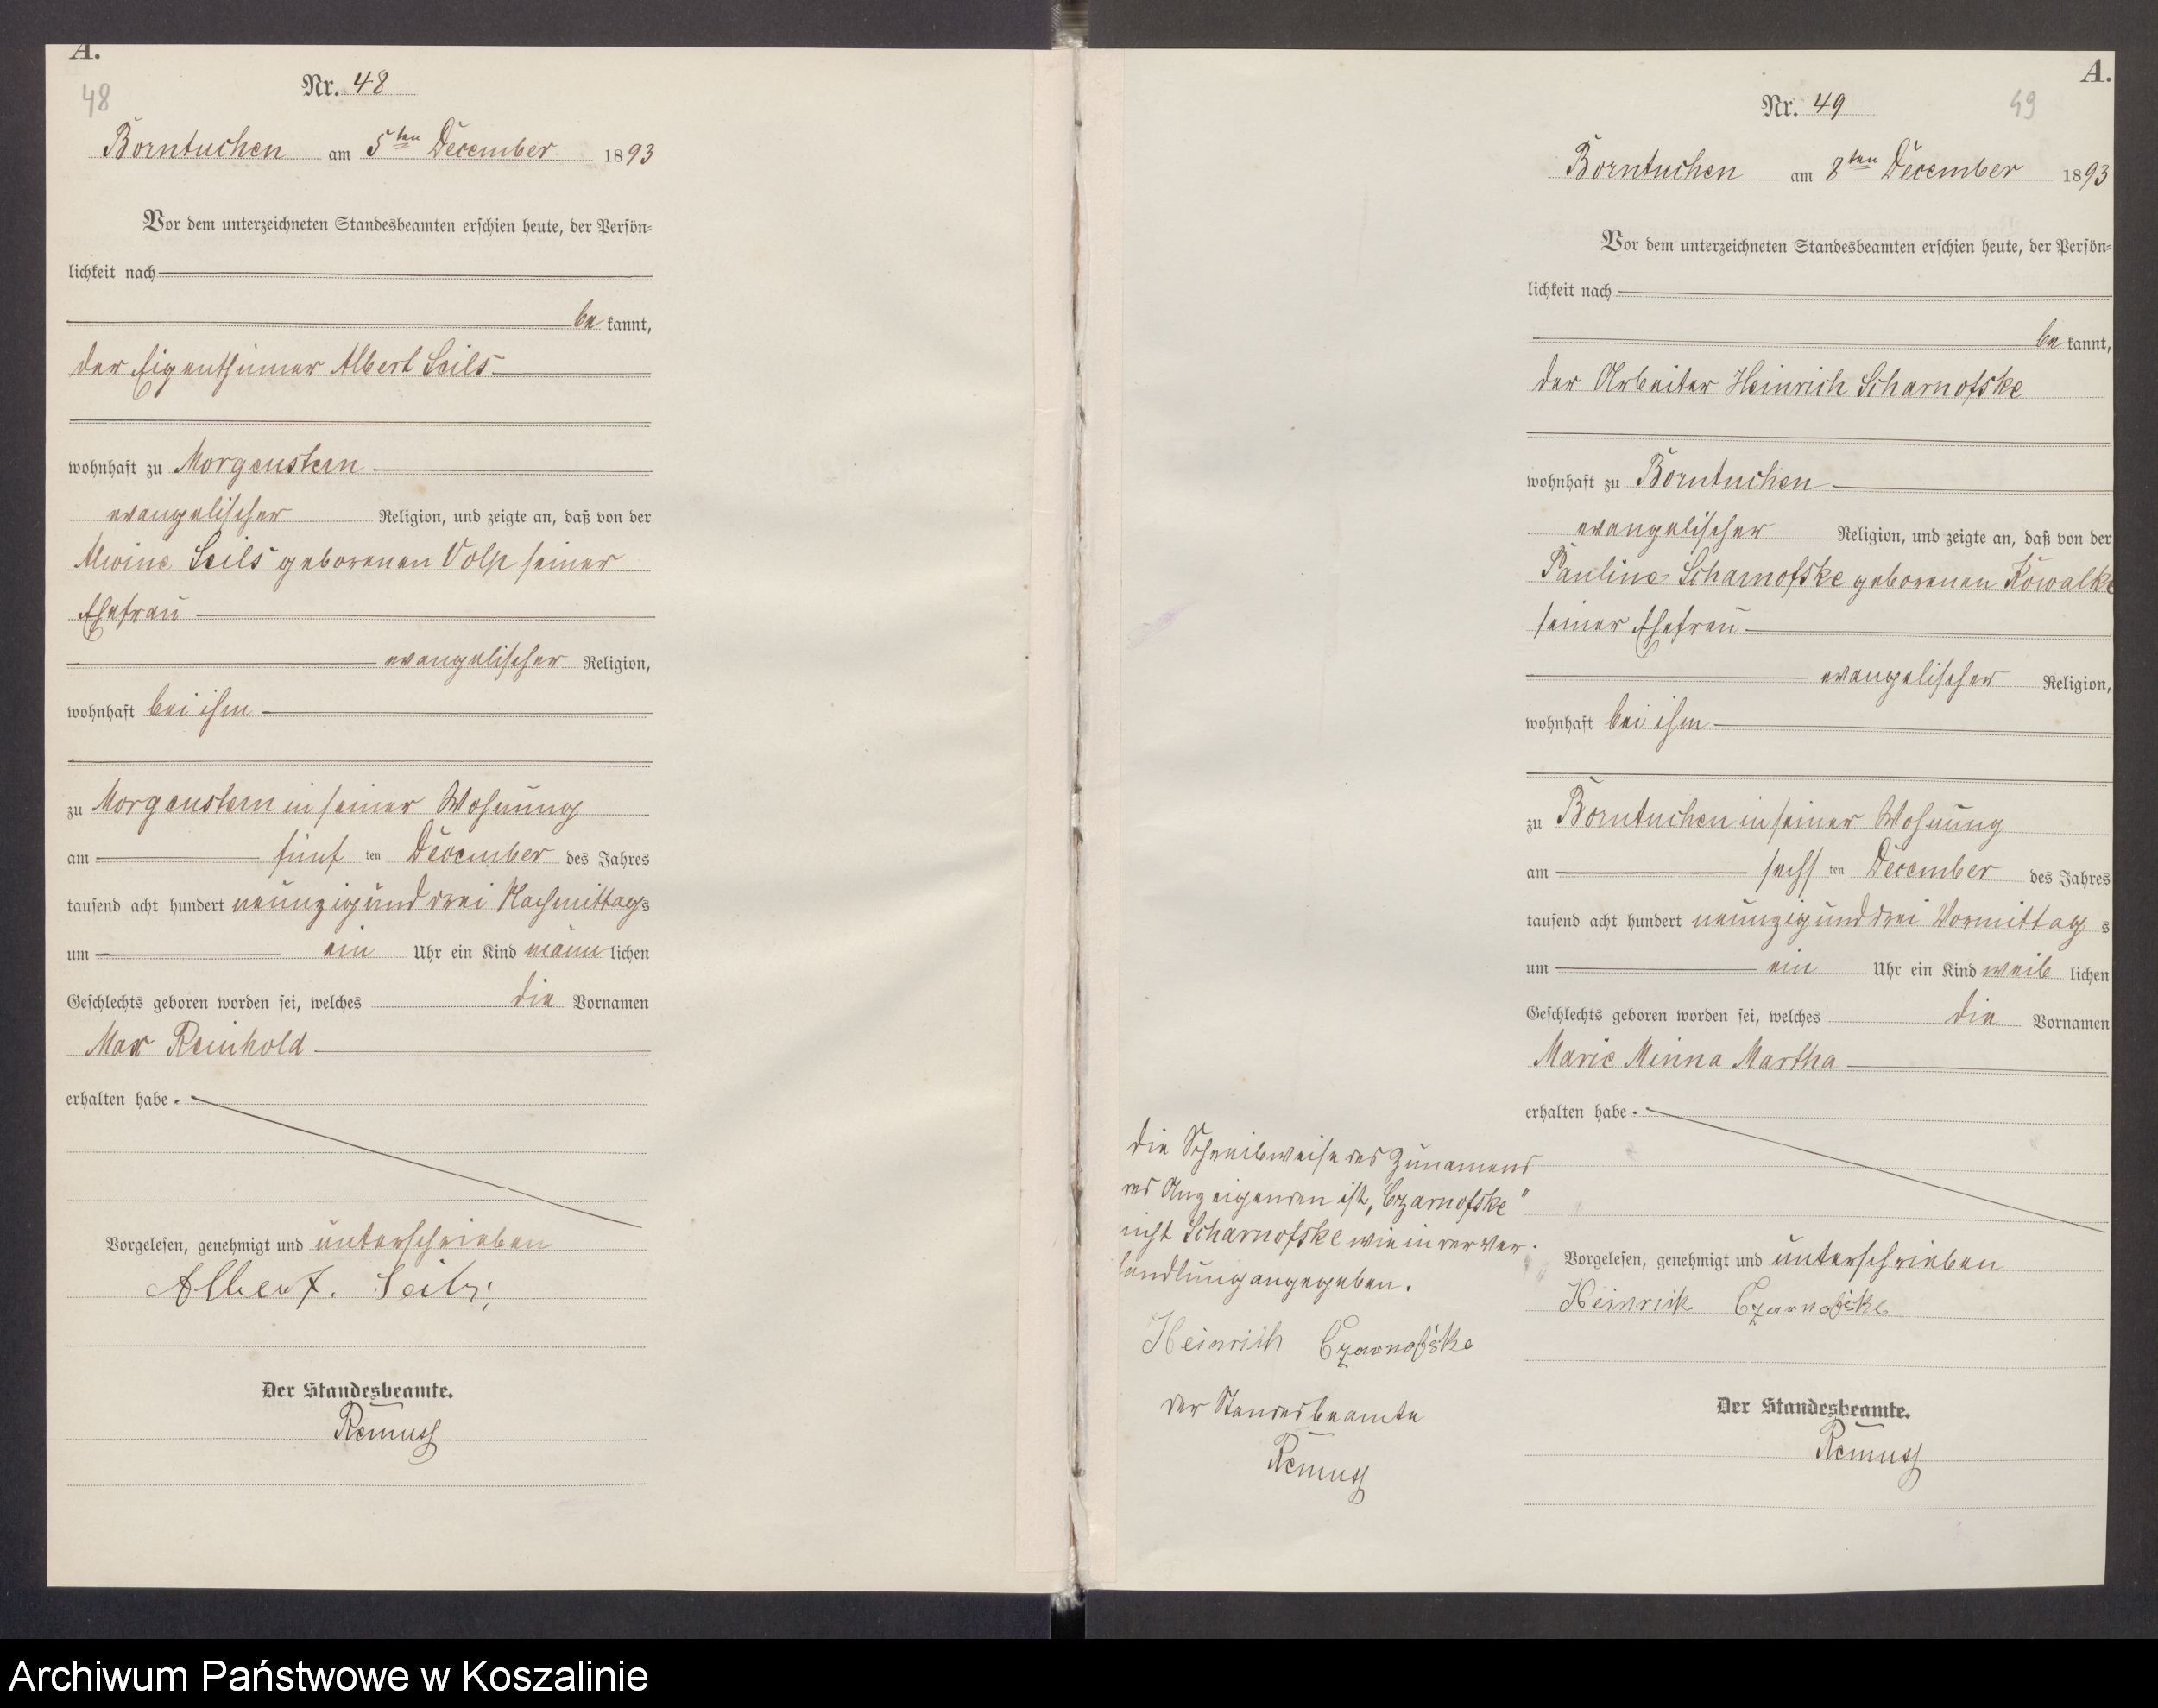 A.
48
Nr. 48
Borntuchen am 5ten December 1893
Vor dem unterzeichneten Standesbeamten erschien heute, der Persön-
lichkeit nach
be kannt,
der Eigenthümer Albert Seils
wohnhaft zu Morgenstern
evangelischer Religion, und zeigte an, daß von der
Alwine Seils geborenen Volp seiner
Ehefrau
evangelischer Religion,
wohnhaft bei ihm
zu Morgenstern in seiner Wohnung
am fünf ten December des Jahres
tausend acht hundert neunzig und drei Nachmittags
um ein Uhr ein Kind männ lichen
Geschlechts geboren worden sei, welches die Vornamen
Max Reinhold
erhalten habe.
Vorgelesen, genehmigt und unterschrieben
Albert Seils
Der Standesbeamte.
Remuss
A.
49
Nr. 49
Borntuchen am 8ten December 1893
Vor dem unterzeichneten Standesbeamten erschien heute, der Persön-
lichkeit nach
be kannt,
der Arbeiter Heinrich Scharnofske
wohnhaft zu Borntuchen
evangelischer Religion, und zeigte an, daß von der
Pauline Scharnofske geborenen Kowalke
seiner Ehefrau
evangelischer Religion,
wohnhaft bei ihm
zu Borntuchen in seiner Wohnung
am sechs ten December des Jahres
tausend acht hundert neunzig und drei Vormittag s
um ein Uhr ein Kind weib lichen
Geschlechts geboren worden sei, welches die Vornamen
Marie Minna Martha
erhalten habe.
Vorgelesen, genehmigt und unterschrieben
Heinrich Czarnofske
Der Standesbeamte.
Remuss
Die Schreibweise des Zunamens
des Anzeigenden ist „Czarnofske"
nicht Scharnofske wie in der Ver-
handlung angegeben.
Heinrich Czarnofske
Der Standesbeamte
Remuss
Archiwum Państwowe w Koszalinie